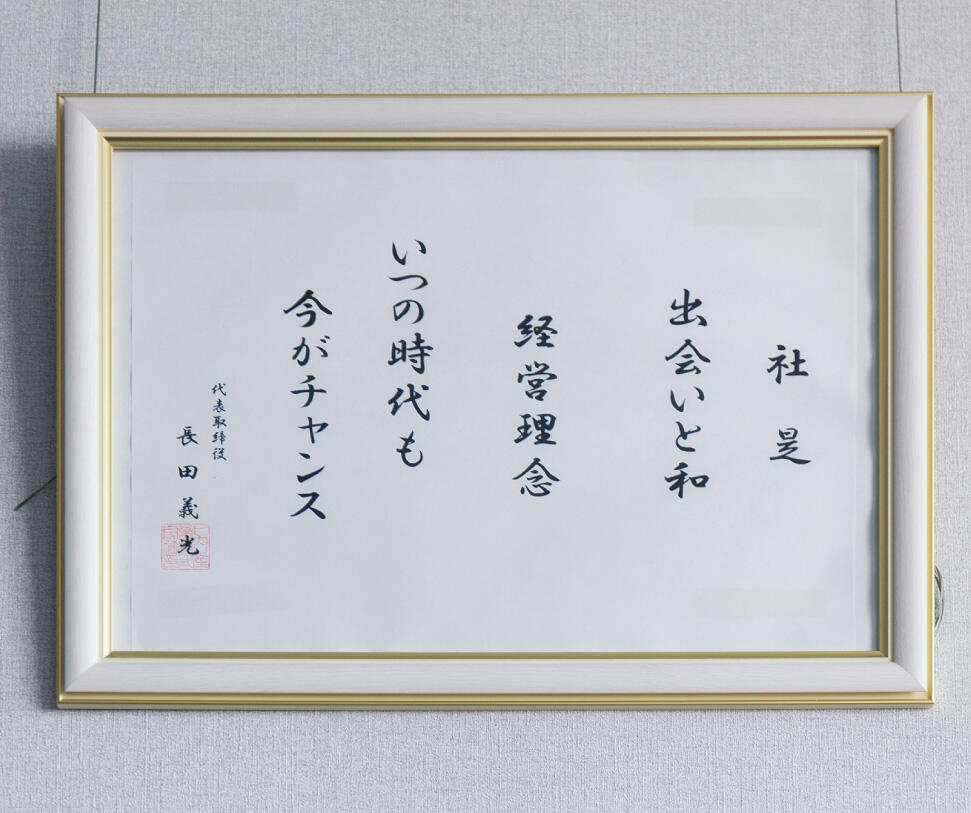 社是
出会いと和
経営理念
いつの時代も
今がチャンス
代表取締役
長田義光